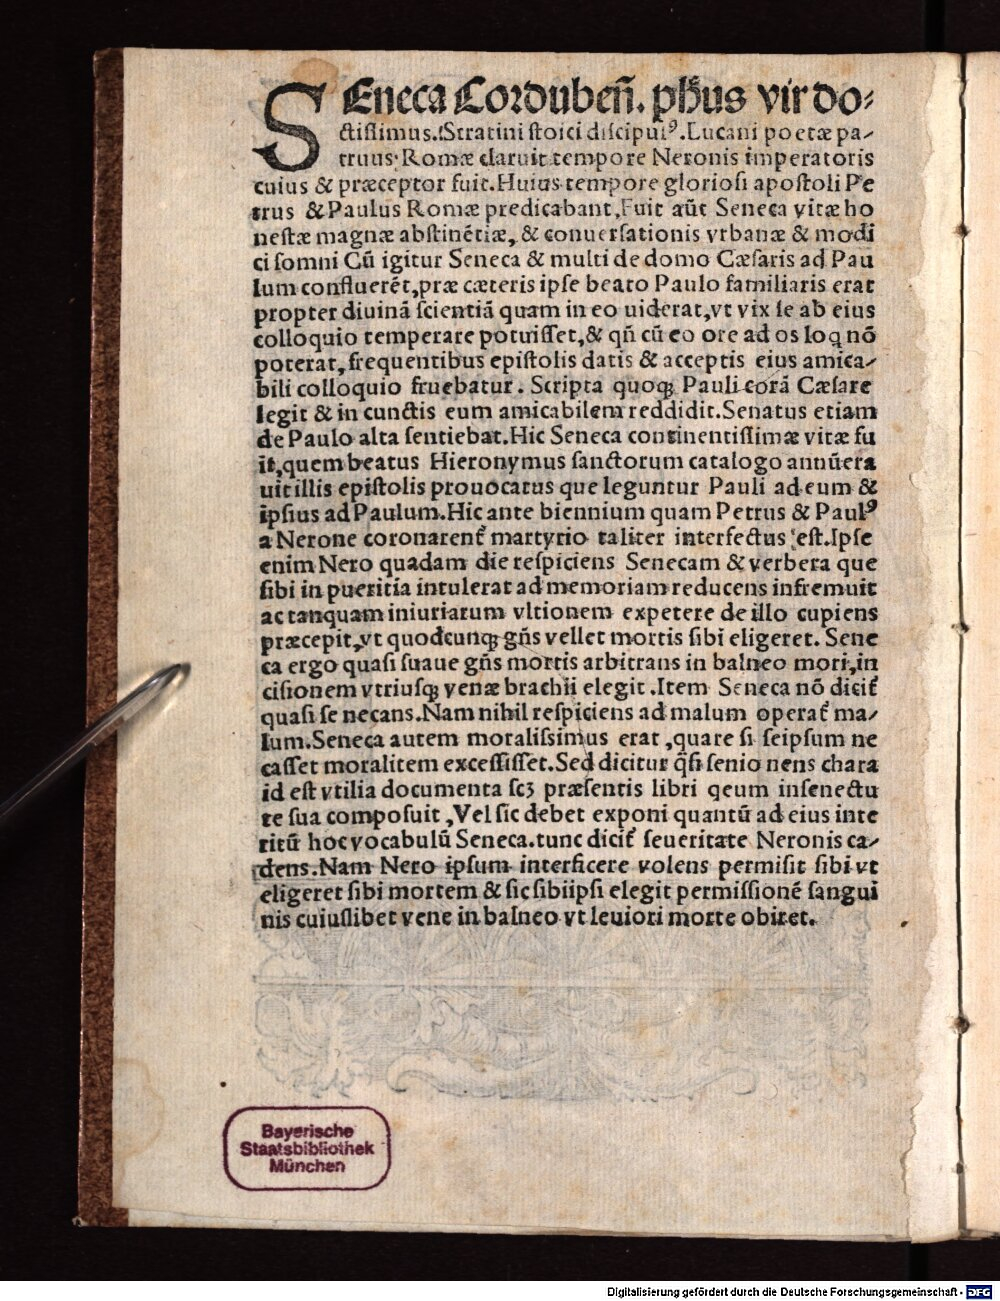 SEneca Cordubeñ. ph̃us vir do⸗
ctissimus. Stratini stoici discipulꝰ. Lucani poetæ pa⸗
truus: Romæ claruit tempore Neronis imperatoris
cuius & præceptor fuit. Huius tempore gloriosi apostoli Pe
trus & Paulus Romæ predicabant, Fuit aūt Seneca vitæ ho
nestæ magnæ abstinētiæ, & conuersationis vrbanæ & modi
ci somni Cū igitur Seneca & multi de domo Cæsaris ad Pau
lum confluerēt, præ cæteris ipse beato Paulo familiaris erat
propter diuinā scientiā quam in eo uiderat, vt vix se ab eius
colloquio temperare potuisset, & qñ cū eo ore ad os loq nō
poterat, frequentibus epistolis datis & acceptis eius amica⸗
bili colloquio fruebatur. Scripta quoqꝫ Pauli corā Cæsare
legit & in cunctis eum amicabilem reddidit. Senatus etiam
de Paulo alta sentiebat. Hic Seneca continentissimæ vitæ fu
it, quem beatus Hieronymus sanctorum catalogo annūera
uit illis epistolis prouocatus que leguntur Pauli ad eum &
ipsius ad Paulum. Hic ante biennium quam Petrus & Paulꝰ
a Nerone coronarent̃ martyrio taliter interfectus est. Ipse
enim Nero quadam die respiciens Senecam & verbera que
sibi in pueritia intulerat ad memoriam reducens infremuit
ac tanquam iniuriarum vltionem expetere de illo cupiens
præcepit, vt quodcunqꝫ gñs vellet mortis sibi eligeret. Sene
ca ergo quasi suaue gñs mortis arbitrans in balneo mori, in
cisionem vtriusqꝫ venæ brachii elegit. Item Seneca nō dicit̃
quasi se necans. Nam nihil respiciens ad malum operat̃ ma⸗
lum. Seneca autem moralissimus erat, quare si seipsum ne
casset moralitem excessisset. Sed dicitur q̃si senio nens chara
id est vtilia documenta scꝫ præsentis libri qeum insenectu
te sua composuit, Vel sic debet exponi quantū ad eius inte
ritū hoc vocabulū Seneca. tunc dicit̃ seueritate Neronis ca⸗
dens. Nam Nero ipsum interficere volens permisit sibi vt
eligeret sibi mortem & sic sibiipsi elegit permissionē sangui
nis cuiuslibet vene in balneo vt leuiori morte obiret.
Bayerische
Staatsbibliothek
München
Digitalisierung gefördert durch die Deutsche Forschungsgemeinschaft - DFG